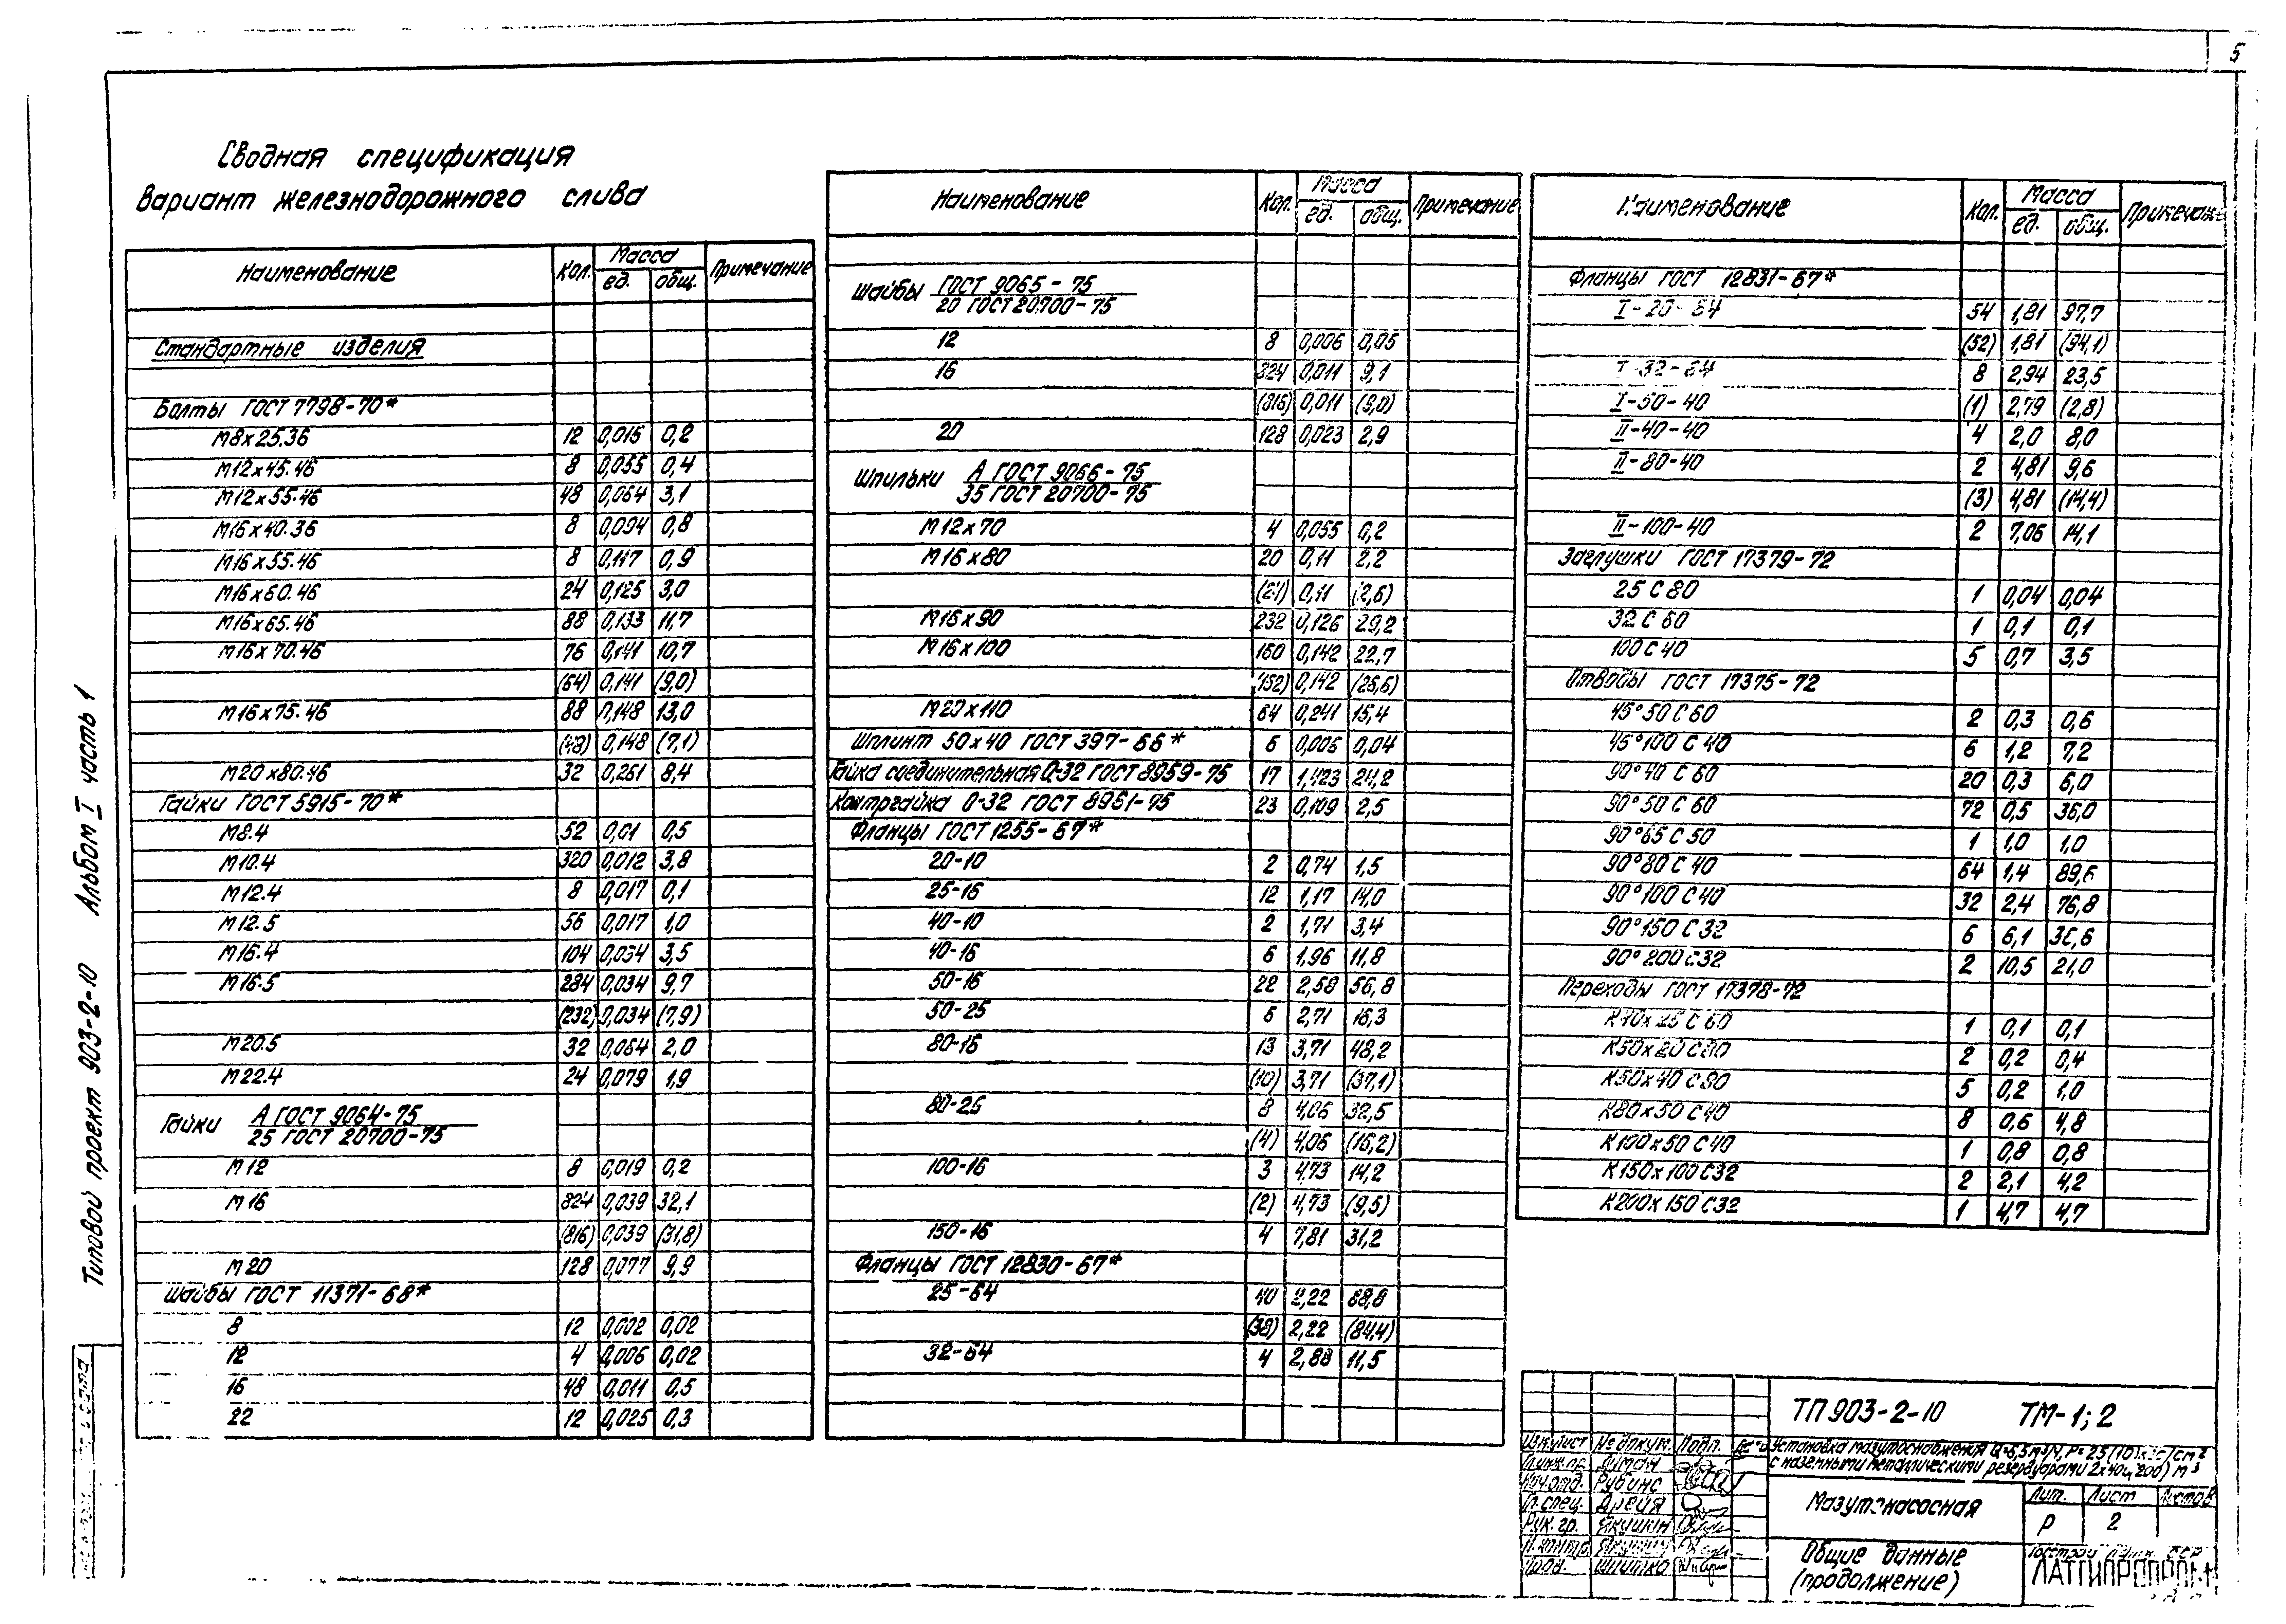 5
Сводная спецификация
Вариант железнодорожного слива
Типовой проект 903-2-10 Альбом I часть 1
Наименование Кол. Масса Примечание
ед. общ.
Стандартные изделия
Болты ГОСТ 7798-70*
М8х25.36 12 0,015 0,2
М12х45.46 8 0,055 0,4
М12х55.46 48 0,064 3,1
М16х40.36 8 0,094 0,8
М16х55.46 8 0,117 0,9
М16х60.46 24 0,125 3,0
М16х65.46 88 0,133 11,7
М16х70.46 76 0,141 10,7
(64) 0,141 (9,0)
М16х75.46 88 0,148 13,0
(48) 0,148 (7,1)
М20х80.46 32 0,261 8,4
Гайки ГОСТ 5915-70*
М8.4 52 0,01 0,5
М10.4 320 0,012 3,8
М12.4 8 0,017 0,1
М12.5 56 0,017 1,0
М16.4 104 0,034 3,5
М16.5 284 0,034 9,7
(232) 0,034 (7,9)
М20.5 32 0,064 2,0
М22.4 24 0,079 1,9
Гайки А ГОСТ 9064-75
25 ГОСТ 20700-75
М12 8 0,019 0,2
М16 824 0,039 32,1
(816) 0,039 (31,8)
М20 128 0,077 9,9
Шайбы ГОСТ 11371-68*
8 12 0,002 0,02
12 4 0,006 0,02
16 48 0,011 0,5
22 12 0,025 0,3
Наименование Кол. Масса Примечание
ед. общ.
Шайбы ГОСТ 9065-75
20 ГОСТ 20700-75
12 8 0,006 0,05
16 824 0,011 9,1
(816) 0,011 (9,0)
20 128 0,023 2,9
Шпильки А ГОСТ 9066-75
35 ГОСТ 20700-75
М12х70 4 0,055 0,2
М16х80 20 0,11 2,2
0,11 (2,6)
М16х90 232 0,126 29,2
М16х100 160 0,142 22,7
0,142
М20х110 64 0,241 15,4
Шплинт 50х40 ГОСТ 397-66* 6 0,006 0,04
Гайка соединительная 0-32 ГОСТ 8959-75 17 1,423 24,2
Контргайка 0-32 ГОСТ 8961-75 23 0,109 2,5
Фланцы ГОСТ 1255-67*
20-10 2 0,74 1,5
25-16 12 1,17 14,0
40-10 2 1,71 3,4
40-16 6 1,96 11,8
50-16 22 2,58 56,8
50-25 6 2,71 16,3
80-16 13 3,71 48,2
(10) 3,71 (37,1)
80-25 8 4,06 32,5
(4) 4,06 (16,2)
100-16 3 4,73 14,2
(2) 4,73 (9,5)
150-16 4 7,81 31,2
Фланцы ГОСТ 12830-67*
25-64 40 2,22 88,8
(38) 2,22 (84,4)
32-64 4 2,88 11,5
Наименование Кол. Масса Примечание
ед. общ.
Фланцы ГОСТ 12831-67*
I-20-64 54 1,81 97,7
(52) 1,81 (94,1)
I-32-64 8 2,94 23,5
I-50-40 (1) 2,79 (2,8)
II-40-40 4 2,0 8,0
II-80-40 2 4,81 9,6
(3) 4,81 (14,4)
II-100-40 2 7,06 14,1
Заглушки ГОСТ 17379-72
25 С 80 1 0,04 0,04
32 С 60 1 0,1 0,1
100 С 40 5 0,7 3,5
Отводы ГОСТ 17375-72
45° 50 С 60 2 0,3 0,6
45° 100 С 40 6 1,2 7,2
90° 40 С 60 20 0,3 6,0
90° 50 С 60 72 0,5 36,0
90° 65 С 50 1 1,0 1,0
90° 80 С 40 64 1,4 89,6
90° 100 С 40 32 2,4 76,8
90° 150 С 32 6 6,1 36,6
90° 200 С 32 2 10,5 21,0
Переходы ГОСТ 17378-72
К40х25 С 60 1 0,1 0,1
К50х20 С80 2 0,2 0,4
К50х40 С80 5 0,2 1,0
К80х50 С40 8 0,6 4,8
К100х50 С40 1 0,8 0,8
К150х100 С32 2 2,1 4,2
К200х150 С32 1 4,7 4,7
ТП 903-2-10 ТМ-1; 2
Изм. Лист № докум. Подп.
Установка мазутоснабжения Q=6,5м³/ч, Р=25(10)кгс/см²
с наземными металлическими резервуарами 2х400(200) м³
Нач. отд. Рубинс
Гл. спец. Дрейя
Рук. гр. Якушкин
Мазутонасосная
Лит. Лист Листов
Р 2
Общие данные
(продолжение)
ЛАТГИПРОПРОМ